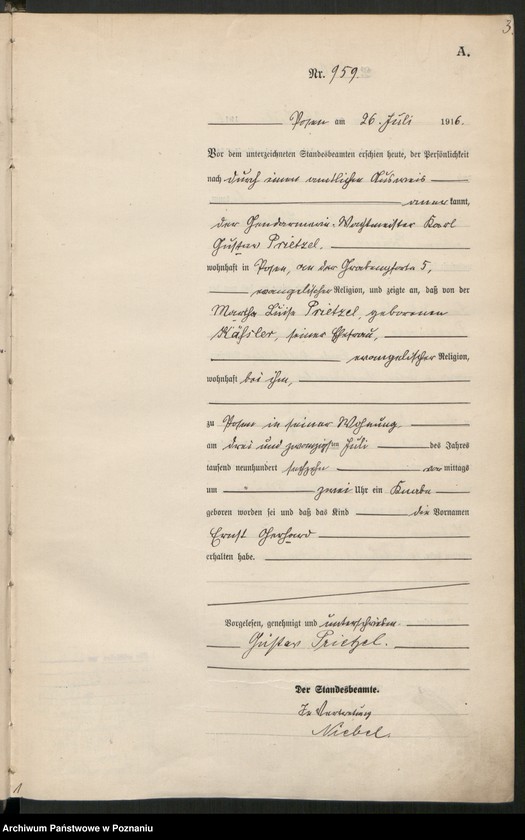 3.
A.
Nr. 959
Posen am 26. Juli 1916.
Vor dem unterzeichneten Standesbeamten erschien heute, der Persönlichkeit
nach durch einen amtlichen Ausweis
anerkannt,
der Gendarmerie-Wachtmeister Karl
Gustav Prietzel,
wohnhaft in Posen, an der Grabenpforte 5,
evangelischer Religion, und zeigte an, daß von der
Martha Luise Prietzel, geborenen
Käßler, seiner Ehefrau,
evangelischer Religion,
wohnhaft bei ihm,
zu Posen in seiner Wohnung
am drei und zwanzigsten Juli des Jahres
tausend neunhundert sechzehn vormittags
um zwei Uhr ein Knabe
geboren worden sei und daß das Kind die Vornamen
Ernst Gerhard
erhalten habe.
Vorgelesen, genehmigt und unterschrieben.
Gustav Prietzel.
Der Standesbeamte.
In Vertretung
Niebel.
1
Archiwum Państwowe w Poznaniu